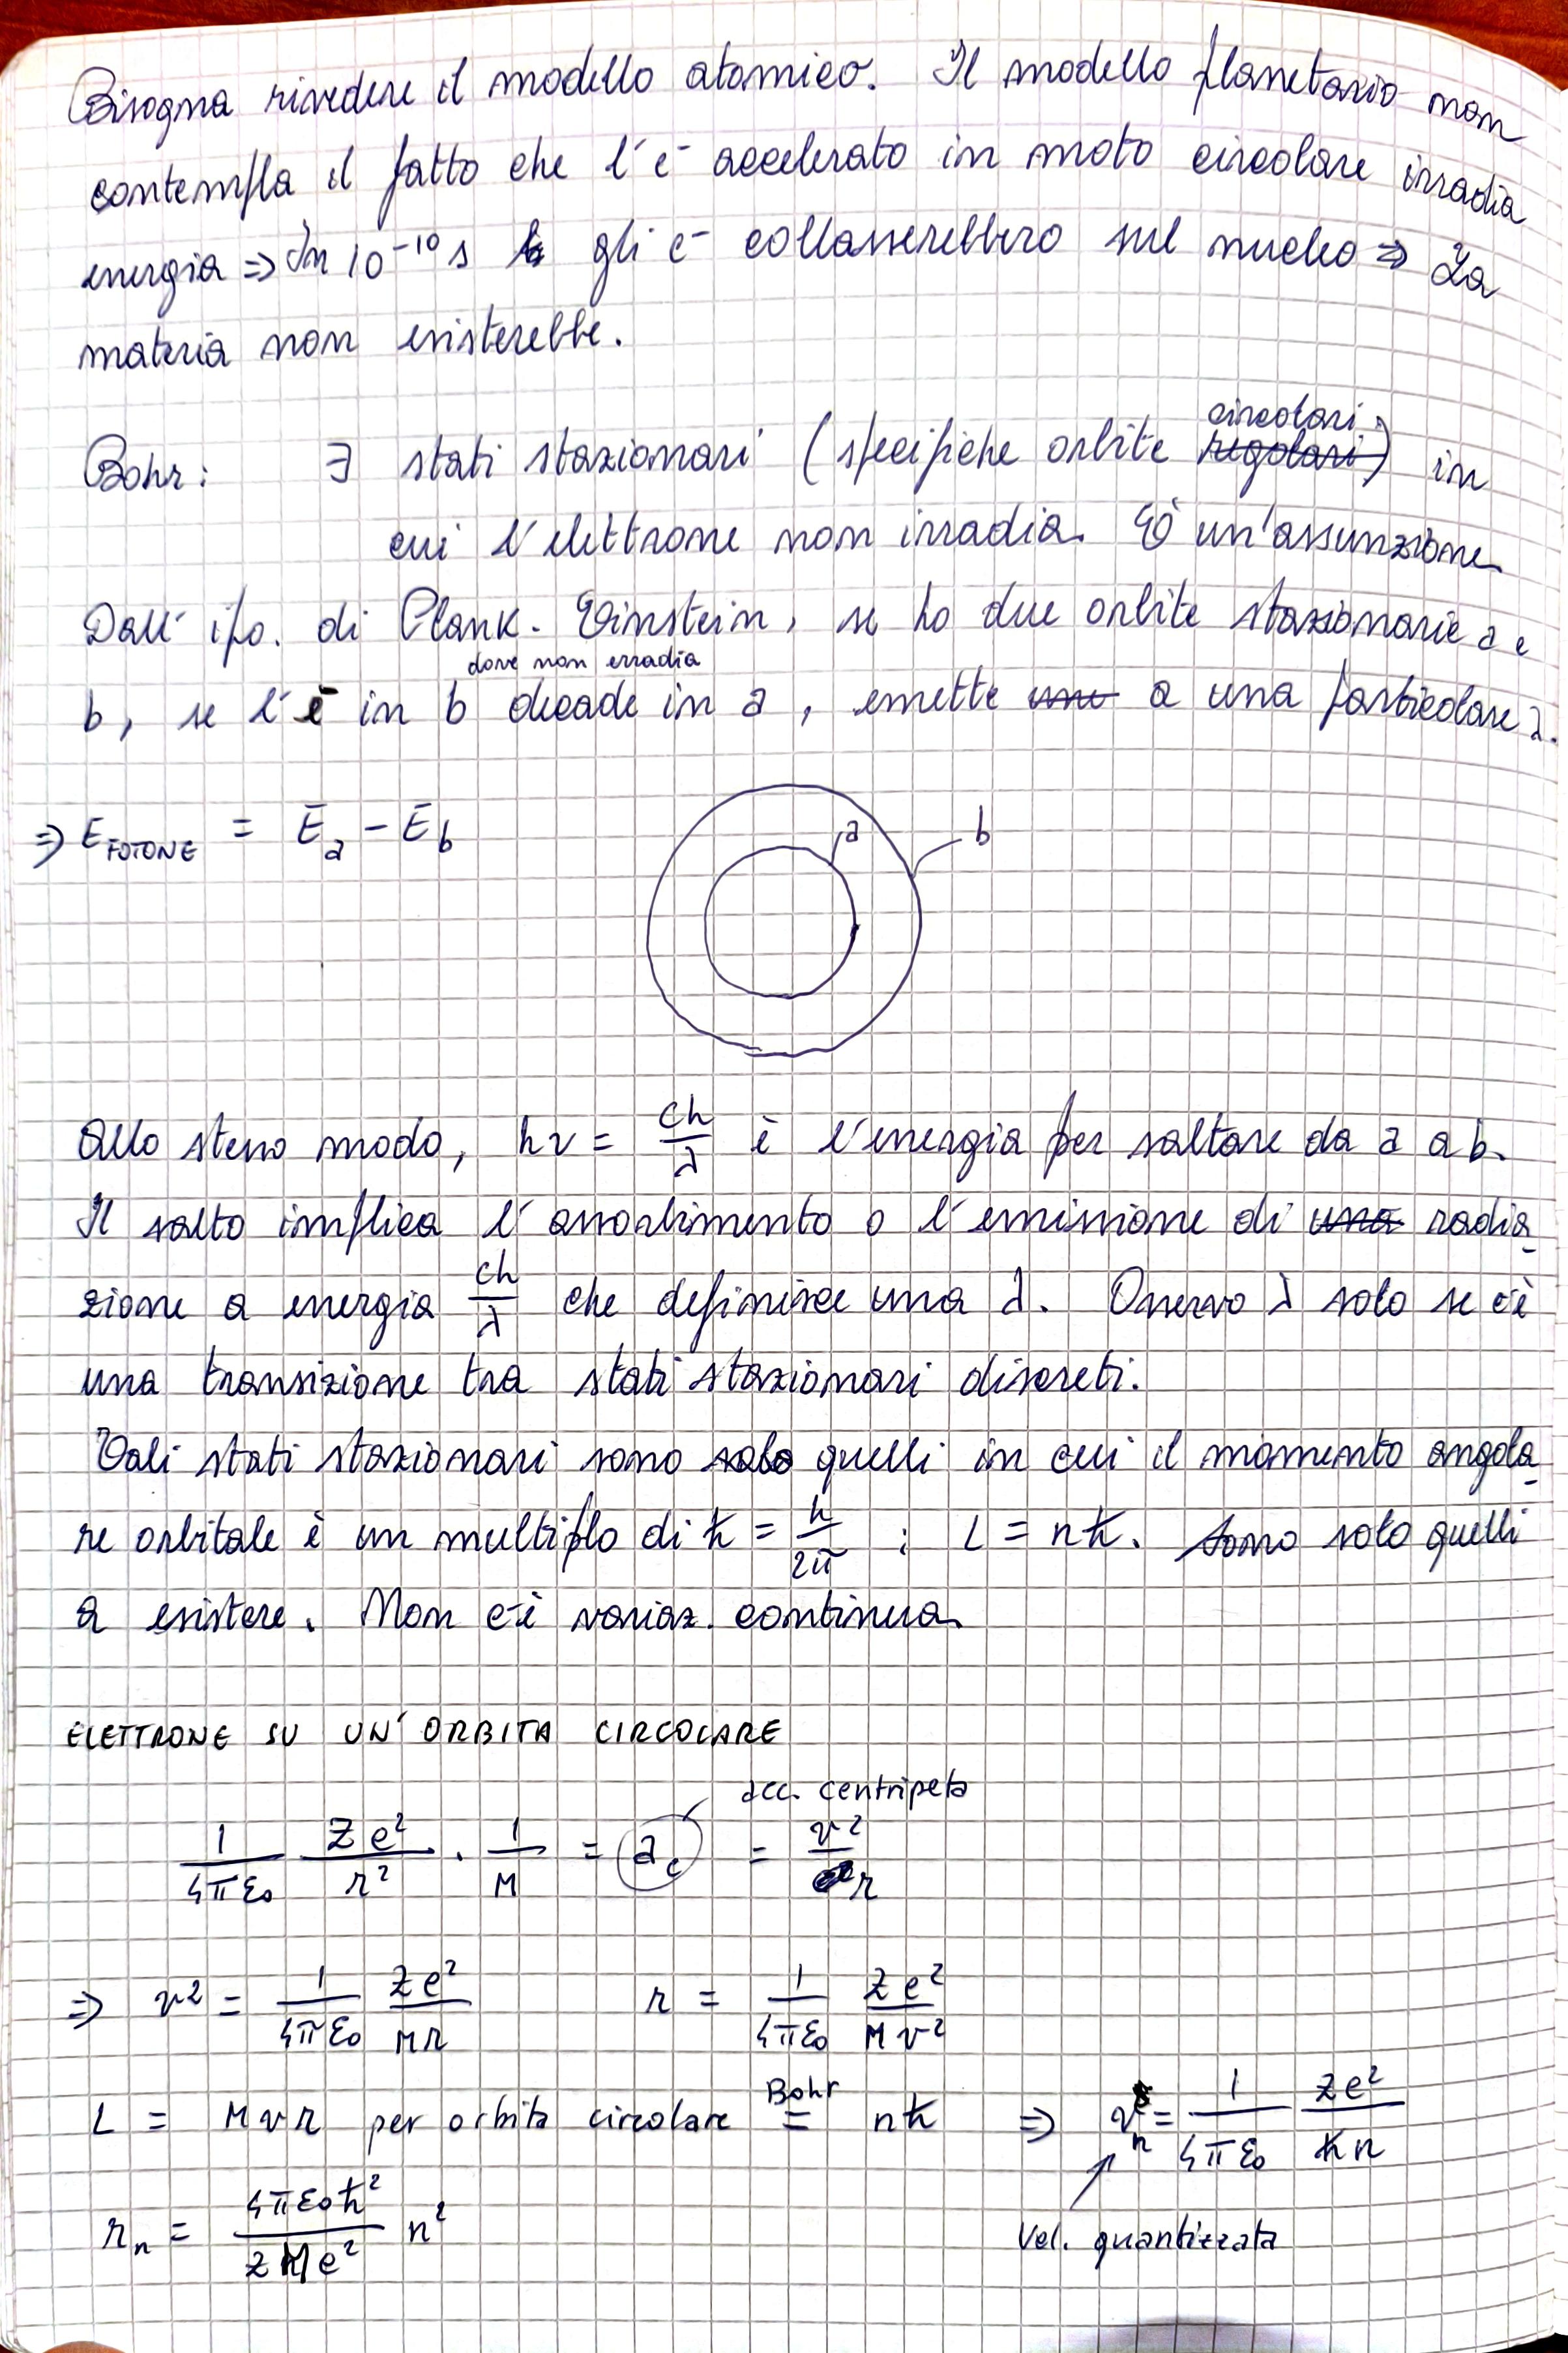 Bisogna rivedere il modello atomico. Il modello planetario non
contempla il fatto che l'e⁻ accelerato in moto circolare irradia
energia ⇒ In 10⁻¹⁰ s gli e⁻ collasserebbero sul nucleo ⇒ La
materia non esisterebbe.
Bohr: ∃ stati stazionari (specifiche orbite regolari circolari) in
cui l'elettrone non irradia. È un'assunzione
Dall' ipo. di Plank. Einstein, se ho due orbite stazionarie a e
dove non erradia
b, se l'e⁻ in b decade in a, emette una a una particolare λ.
⇒ E_FOTONE = E_a − E_b
a b
Allo stesso modo, hν = ch/λ è l'energia per saltare da a a b.
Il salto implica l'assorbimento o l'emissione di una radia-
zione a energia ch/λ che definisce una λ. Osservo λ solo se c'è
una transizione tra stati stazionari discreti.
Tali stati stazionari sono solo quelli in cui il momento angola-
re orbitale è un multiplo di ħ = h/2π ; L = nħ. Sono solo quelli
a esistere. Non c'è variaz. continua.
ELETTRONE SU UN'ORBITA CIRCOLARE
acc. centripeta
1/4πε₀ Ze²/r² · 1/M = a_c = v²/r
⇒ v² = 1/4πε₀ Ze²/Mr r = 1/4πε₀ Ze²/Mv²
L = Mvr per orbita circolare Bohr = nħ ⇒ v_n = 1/4πε₀ Ze²/ħn
r_n = 4πε₀ħ²/ZMe² n²
Vel. quantizzata